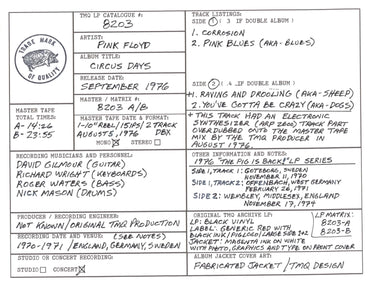 TMQ LP CATALOGUE #:
8203
ARTIST:
PINK FLOYD
ALBUM TITLE:
CIRCUS DAYS
RELEASE DATE:
SEPTEMBER 1976
MASTER / MATRIX #:
8203 A/B
TRADE MARK
OF QUALITY
MASTER TAPE
TOTAL TIMES:
A-14:26
B-23:55
MASTER TAPE DATE & FORMAT:
1-10" REEL/15IPS/2 TRACK
AUGUST 5, 1976 DBX
MONO STEREO
RECORDING MUSICIANS AND PERSONNEL:
DAVID GILMOUR (GUITAR)
RICHARD WRIGHT (KEYBOARDS)
ROGER WATERS (BASS)
NICK MASON (DRUMS)
PRODUCER / RECORDING ENGINEER:
NOT KNOWN/ORIGINAL TMQ PRODUCTION
RECORDING DATE AND VENUE: (SEE NOTES)
1970-1971 / ENGLAND, GERMANY, SWEDEN
STUDIO OR CONCERT RECORDING:
STUDIO CONCERT
TRACK LISTINGS:
SIDE 1 ( 3 IF DOUBLE ALBUM )
1. CORROSION
2. PINK BLUES (AKA-BLUES)
SIDE 2 ( 4 IF DOUBLE ALBUM )
+1. RAVING AND DROOLING (AKA-SHEEP)
2. YOU'VE GOTTA BE CRAZY (AKA-DOGS)
+ THIS TRACK HAD AN ELECTRONIC
SYNTHESIZER (ARP 2600) TRACK PART
OVERDUBBED ONTO THE MASTER TAPE
MIX BY THE TMQ PRODUCER IN
AUGUST 1976.
OTHER INFORMATION AND NOTES:
1976 "THE PIG IS BACK!" LP SERIES
SIDE 1, TRACK 1: GOTEBORG, SWEDEN
NOVEMBER 11, 1970
SIDE 1, TRACK 2: OFFENBACH, WEST GERMANY
FEBRUARY 26, 1971
SIDE 2: WEMBLEY, MIDDLESEX, ENGLAND
NOVEMBER 17, 1974
ORIGINAL TMQ ARCHIVE LP:
LP: BLACK VINYL
LABEL: GENERIC RED WITH
BLACK INK/PIG LOGO/LARGE SIDE 1 OR 2
JACKET: MAGENTA INK ON WHITE
WITH PHOTO, GRAPHICS AND TYPE ON FRONT COVER
LP MATRIX:
8203-A
8203-B
ALBUM JACKET COVER ART:
FABRICATED JACKET / TMQ DESIGN